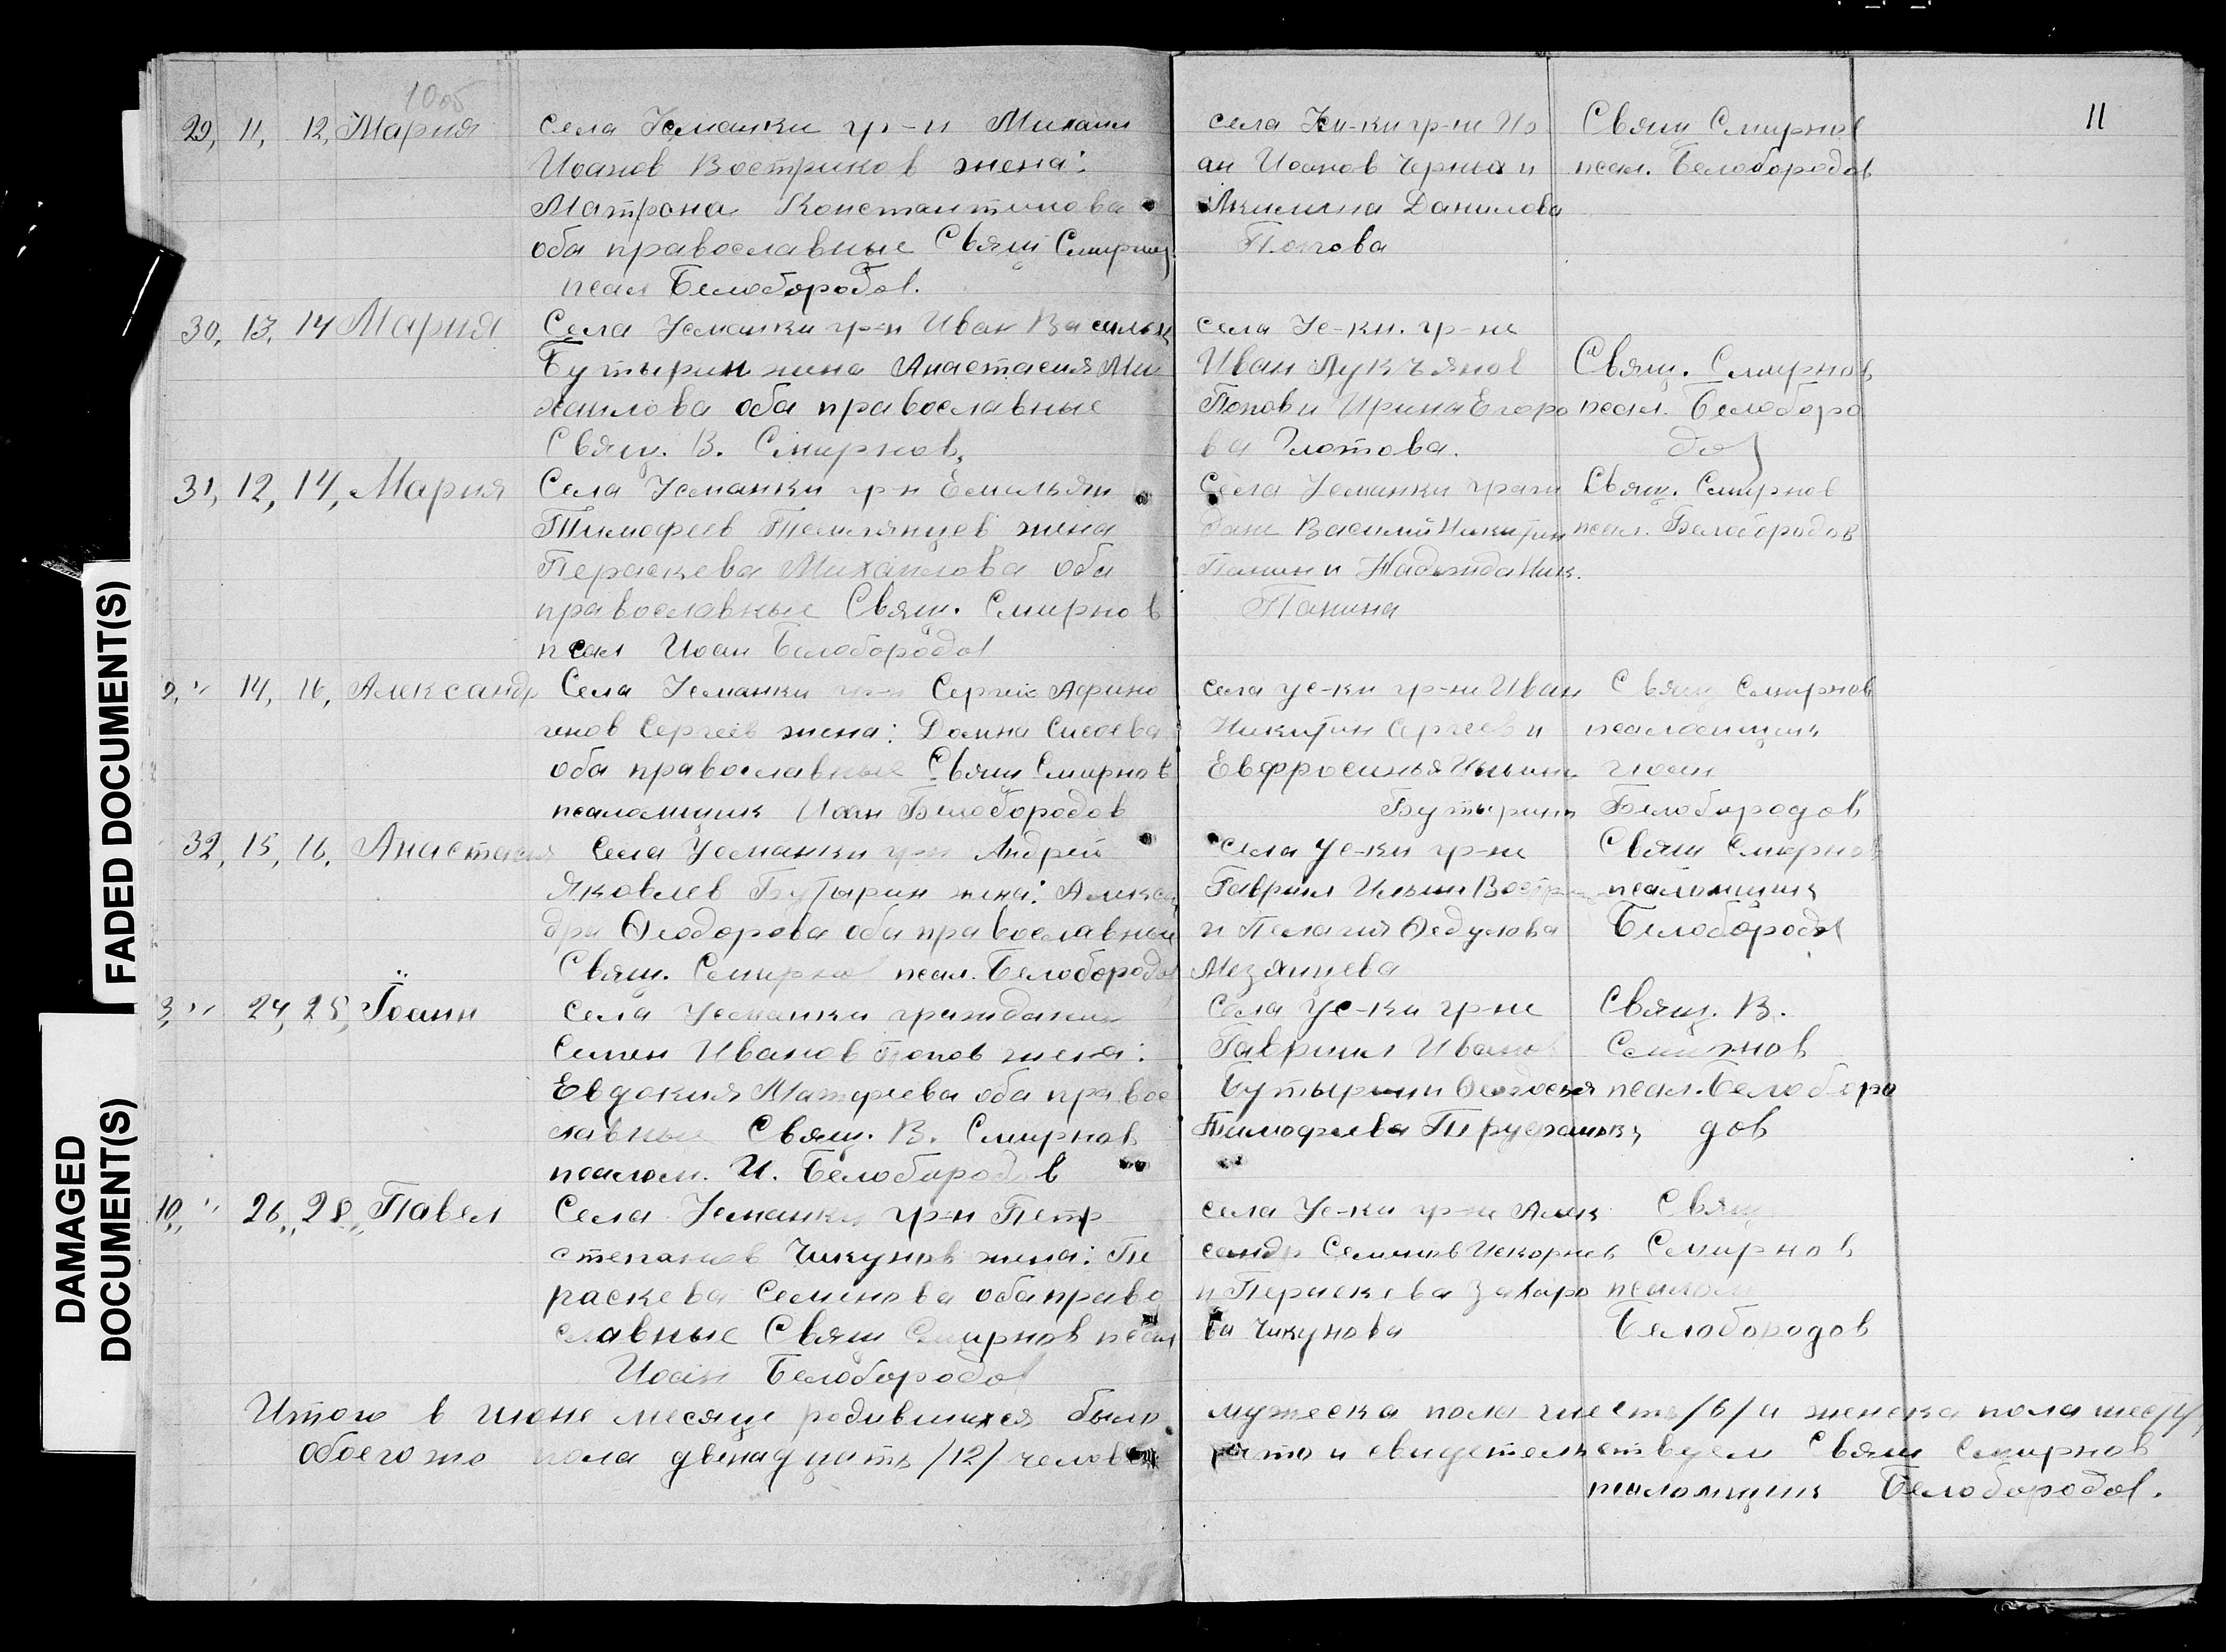 10об
11
29, 11, 12, Мария села Усманки гр-н Михаил
Иоанов Востриков жена:
Матрона Константинова
оба православные Свящ Смирнов
псал Белобородов.
села Ус-ки гр-не Ио
ан Иоанов Черных и
Акилина Данилова
Попова
Свящ Смирнов
псал. Белобородов
30, 13, 14 Мария Села Усманки гр-н Иван Васильев
Бутырин жена Анастасия Ми
хаилова оба православные
Свящ. В. Смирнов,
села Ус-ки. гр-не
Иван Лукъянов
Попов и Ирина Егоро
ва Глотова.
Свящ. Смирнов
псал. Белоборо
дов
31, 12, 14, Мария Села Усманки гр-н Емильян
Тимофеев жена
Пераскева Михаилова оба
православные Свящ. Смирнов
псал Иоан Белобородов
Села Усманки граж
дане Василий Никитин
Панин и Надежда Ник.
Панина
Свящ. Смирнов
псал. Белобородов
9, " 14, 16, Александр Села Усманки гр-н Сергей Афино
генов Сергеев жена: Домна Сисоева
оба православные Свящ Смирнов
псаломщик Иоан Белобородов
села Ус-ки гр-не Иван
Никитин Сергеев и
Евфросинья Ильина
Бутырина
Свящ Смирнов
псаломщик
Иоан
Белобородов
32, 15, 16, Анастасия Села Усманки гр-н Андрей
Яковлев Бутырин жена: Алексан
дра Ѳеодорова оба православные
Свящ. Смирнов псал. Белобородов
села Ус-ки гр-не
Гавриил Ильин Востр
и Пелагия Ѳедулова
Мезянцева
Свящ Смирнов
псаломщик
Белобородов
3, " 24, 25, Їоанн Села Усманки гражданин
Семен Иванов Попов жена:
Евдокия Матфеева оба право
славные Свящ. В. Смирнов
псалом. И. Белобородов
Села Ус-ки гр-не
Гавриил Иванов
Бутырин и Ѳеодосья
Тимофеева
Свящ. В.
Смирнов
псал. Белоборо
дов
10, " 26, 28, Павел Села Усманки гр-н Петр
Степанов Чикунов жена: Пе
раскева Семенова оба право
славные Свящ Смирнов псал
Иоан Белобородов
села Ус-ки гр-не Алек
сандр Семенов
и Пераскева Захаро
ва Чикунова
Свящ
Смирнов
псалом
Белобородов
Итого в июне месяце родившихся было мужеска пола шесть /6/ и женска пола шесть /6/,
обоего же пола двенадцать /12/ человек что и свидетельствуем Свящ Смирнов
псаломщик Белобородов.
FADED DOCUMENT(S)
DAMAGED
DOCUMENT(S)